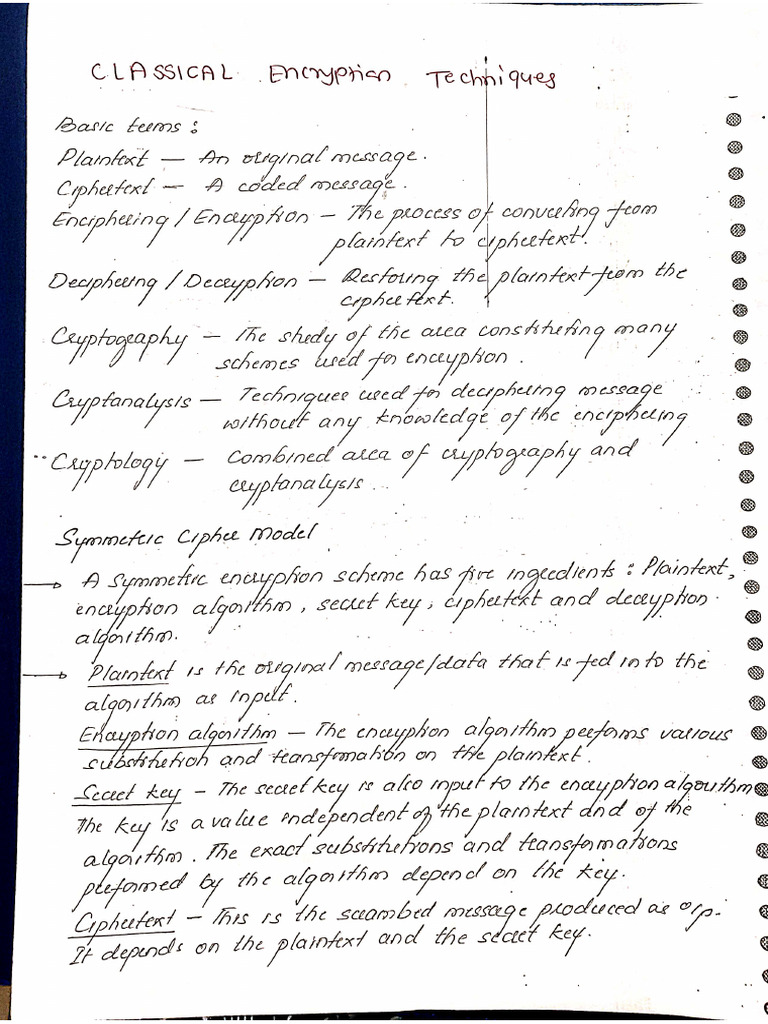 CLASSICAL Encryption Techniques
Basic terms :
Plaintext — An original message.
Ciphertext — A coded message.
Enciphering / Encryption — The process of converting from
plaintext to ciphertext.
Deciphering / Decryption — Restoring the plaintext from the
ciphertext.
Cryptography — The study of the area constituting many
schemes used for encryption.
Cryptanalysis — Techniques used for deciphering message
without any knowledge of the enciphering
Cryptology — Combined area of cryptography and
cryptanalysis
Symmetric Cipher Model
→ A symmetric encryption scheme has five ingredients : Plaintext,
encryption algorithm, secret key, ciphertext and decryption
algorithm.
→ Plaintext is the original message/data that is fed into the
algorithm as input.
Encryption algorithm — The encryption algorithm performs various
substitution and transfmation on the plaintext.
Secret key — The secret key is also input to the encryption algorithm
The key is a value independent of the plaintext and of the
algorithm. The exact substitutions and transformations
preformed by the algorithm depend on the key.
Ciphertext — This is the scrambed message produced as o/p.
It depends on the plaintext and the secret key.